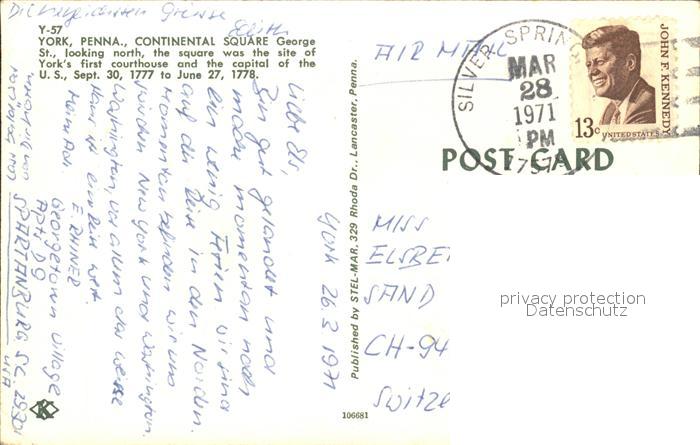 Y-57
YORK, PENNA., CONTINENTAL SQUARE George
St., looking north, the square was the site of
York's first courthouse and the capital of the
U. S., Sept. 30, 1777 to June 27, 1778.
York 26.3 1971
Liebe Els,
Bin gut gelandet und
mache momentan noch
ein wenig Ferien. Wir sind
auf der Reise in den Norden.
Momentan befinden wir uns
zwischen New York und Washington.
Washington, vor allem das weisse
Haus ist ein Besuch wert.
Meine Adr.
E. RHINER
Georgetown Village
Apt. D 9
SPARTANBURG SC.
USA
Edith
Published by STEL-MAR, 329 Rhoda Dr., Lancaster, Penna.
106681
AIR MAIL
SILVER SPRING
MAR
28
1971
PM
JOHN F. KENNEDY
13c UNITED STATES
POST CARD
MISS
ELSBE
SAND
CH-94
Switze
privacy protection
Datenschutz